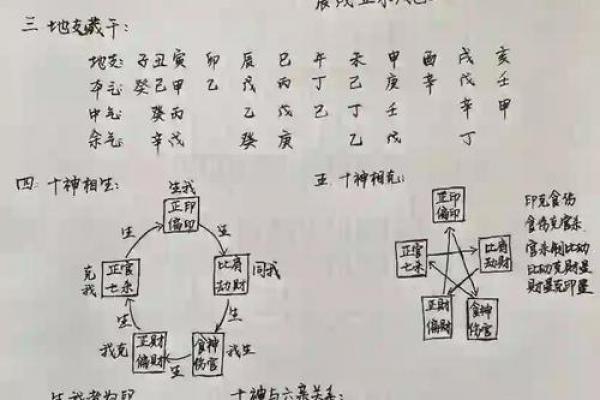 辰戌丑未
三 地支藏干:
地支: 子 丑 寅 卯 辰 巳 午 未 申 酉 戌 亥
本气: 癸 己 甲 乙 戊 丙 丁 己 庚 辛 戊 壬
中气: 癸 丙 乙 戊 己 丁 壬 辛 甲
余气: 辛 戊 癸 庚 乙 戊 丁
四. 十神相生:
生我
正印
偏印
生
生
克我
正官
七杀
比肩
劫财
同我
生
生
我克
正财
偏财
生
食神
伤官
我生
五. 十神相克:
正印
偏印
正官
七杀
比肩
劫财
正财
偏财
食神
伤官
印克食伤
食伤克官杀
官杀制比劫
比劫克财星
财星克印星
生我者为印
十神与六亲关系: